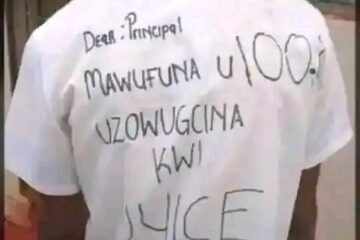 DEAR: PRINCIPAL
MAWUFUNA U 100.%
UZOWUGCINA
KWI
JUICE